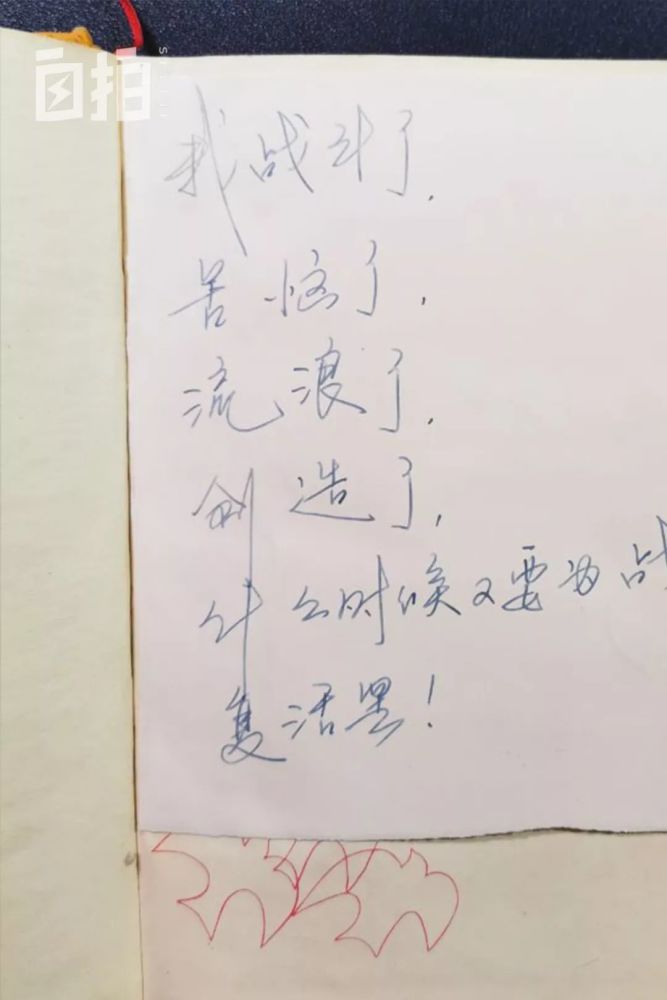 自拍
我战斗了,
苦恼了,
流浪了,
创造了,
什么时候又要为战
复活黑!